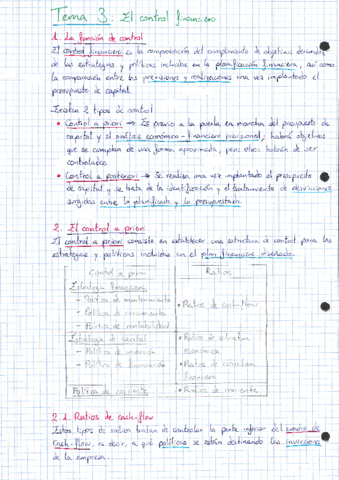 Tema 3: El control financiero
1. La función de control
El control financiero es la comprobación del cumplimiento de objetivos derivados
de las estrategias y políticas incluidas en la planificación financiera, así como
la comparación entre las previsiones y realizaciones una vez implantado el
presupuesto de capital.
Existen 2 tipos de control:
• Control a priori → Es previo a la puesta en marcha del presupuesto de
capital y el análisis económico-financiero previsional, habrá objetivos
que se cumplan de una forma aproximada, pero otros habrán de ser
controlados
• Control a posteriori → Se realiza una vez implantado el presupuesto
de capital y se trata de la identificación y el tratamiento de desviaciones
surgidas entre lo planificado y lo presupuestado
2. El control a priori
El control a priori consiste en establecer una estructura de control para las
estrategias y políticas incluidas en el plan financiero diseñado.
Control a priori Ratios
Estrategia financiera
- Política de mantenimiento
- Política de crecimiento • Ratios de cash-flow
- Política de rentabilidad
Estrategia de capital • Ratios de estructura
- Política de inversión económica
- Política de financiación • Ratios de estructura
financiera
Política de circulante • Ratios de circulante
2.1. Ratios de cash-flow
Estos tipos de ratios tratan de controlar la parte inferior del cuadro de
cash-flow, es decir, a qué políticas se están destinando las inversiones
de la empresa.